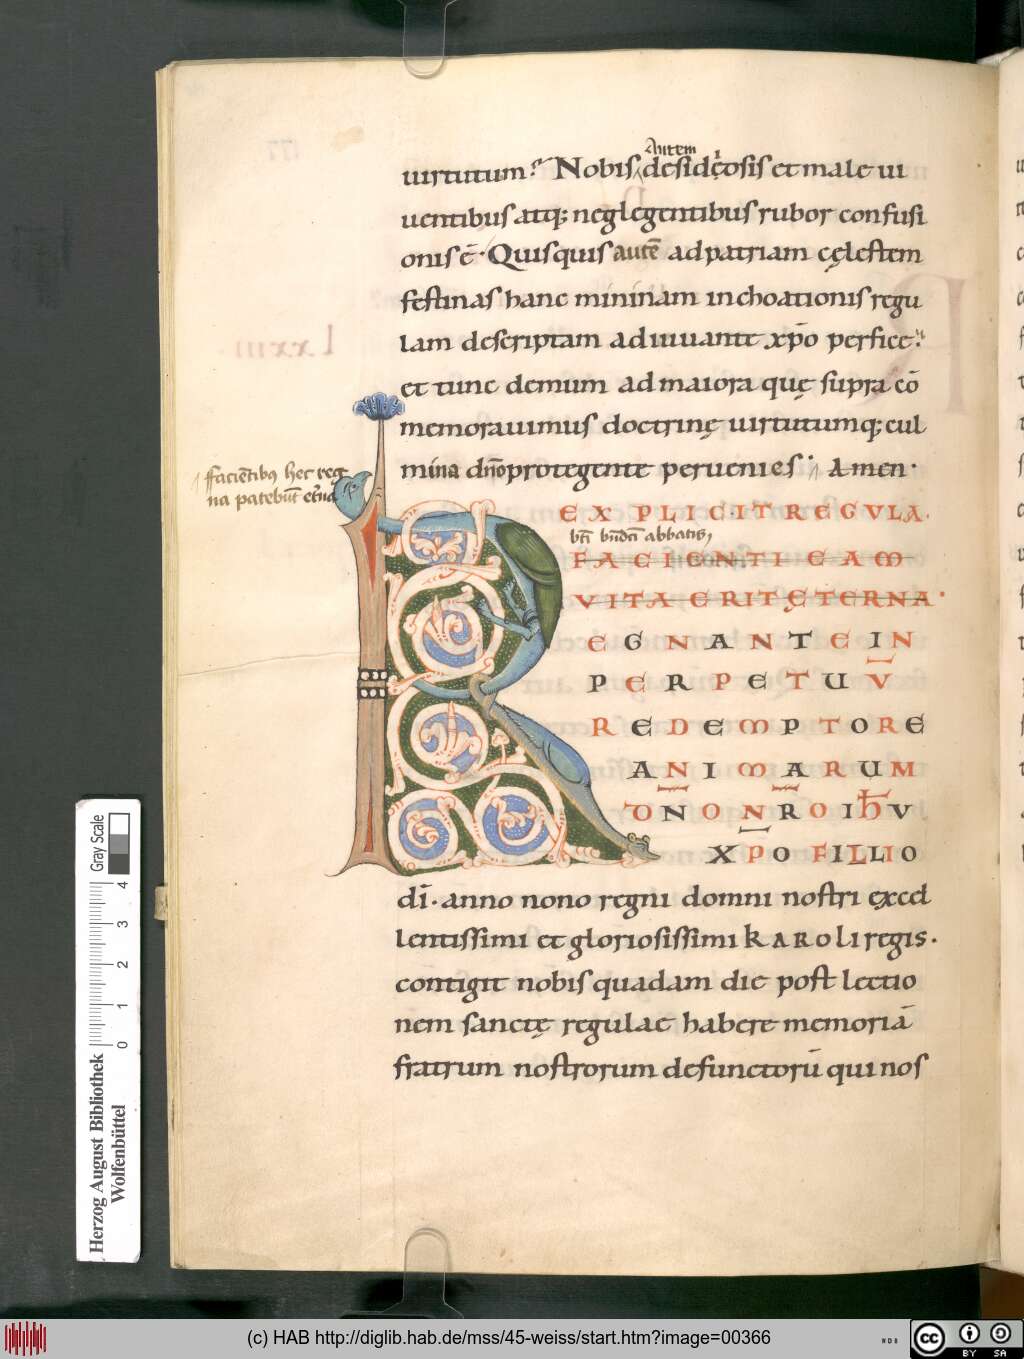 Autem
uirtutum? Nobis desidęosis et male ui
uentibus atq; neglegentibus rubor confusi
onis ē. Quisquis autē ad patriam cęlestem
festinas hanc mininam inchoationis regu
lam descriptam adiuuante xp̄o perfice.
et tunc demum ad maiora quę supra cō
memorauimus doctrinę uirtutumq; cul
mina dn̄o protegente peruenies. Amen.
faciētibꝰ hec reg
na patebūt et̄na
EXPLICIT REGVLA.
btī bn̄dcī abbatis,
FACIENTI EAM
VITA ERIT ĘTERNA.
REGNANTE IN
PERPETUV̄
REDEMPTORE
ANIMARUM
DN̄O NR̄O IHV
XP̄O FILLIO
dī. anno nono regni domni nostri excel
lentissimi et gloriosissimi KAROLI regis.
contigit nobis quadam die post lectio
nem sanctę regulae habere memoriā
fratrum nostrorum defunctorū qui nos
lxxiii
177
Gray Scale
0 1 2 3 4
Herzog August Bibliothek
Wolfenbüttel
(c) HAB http://diglib.hab.de/mss/45-weiss/start.htm?image=00366
WDB
cc BY SA